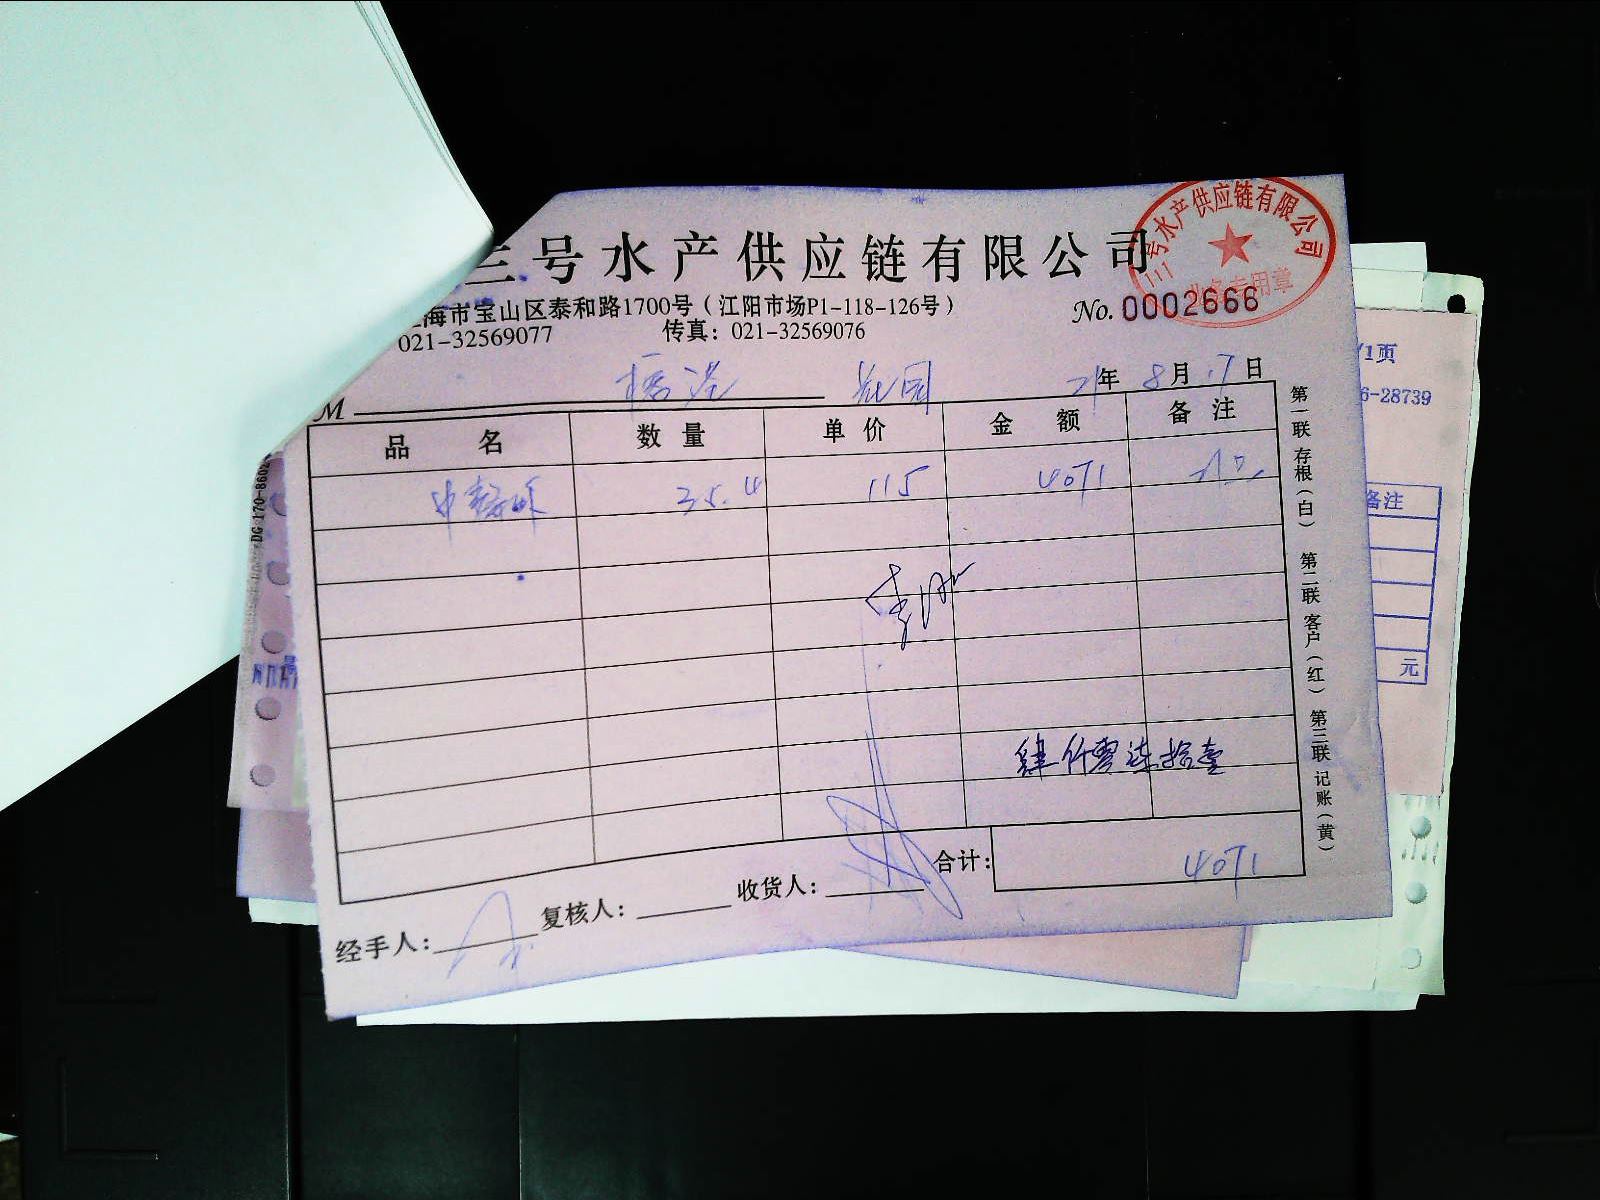 三号水产供应链有限公司
海市宝山区泰和路1700号（江阳市场P1-118-126号）
021-32569077 传真：021-32569076
No. 0002666
号水产供应链有限公司
专用章
M 花园 21年 8月 17日
品名 数量 单价 金额 备注
35.4 115 4071
肆仟零柒拾壹
合计： 4071
经手人： 复核人： 收货人：
第一联 存根（白） 第二联 客户（红） 第三联 记账（黄）
/1页
6-28739
备注
元
DG 170-8602